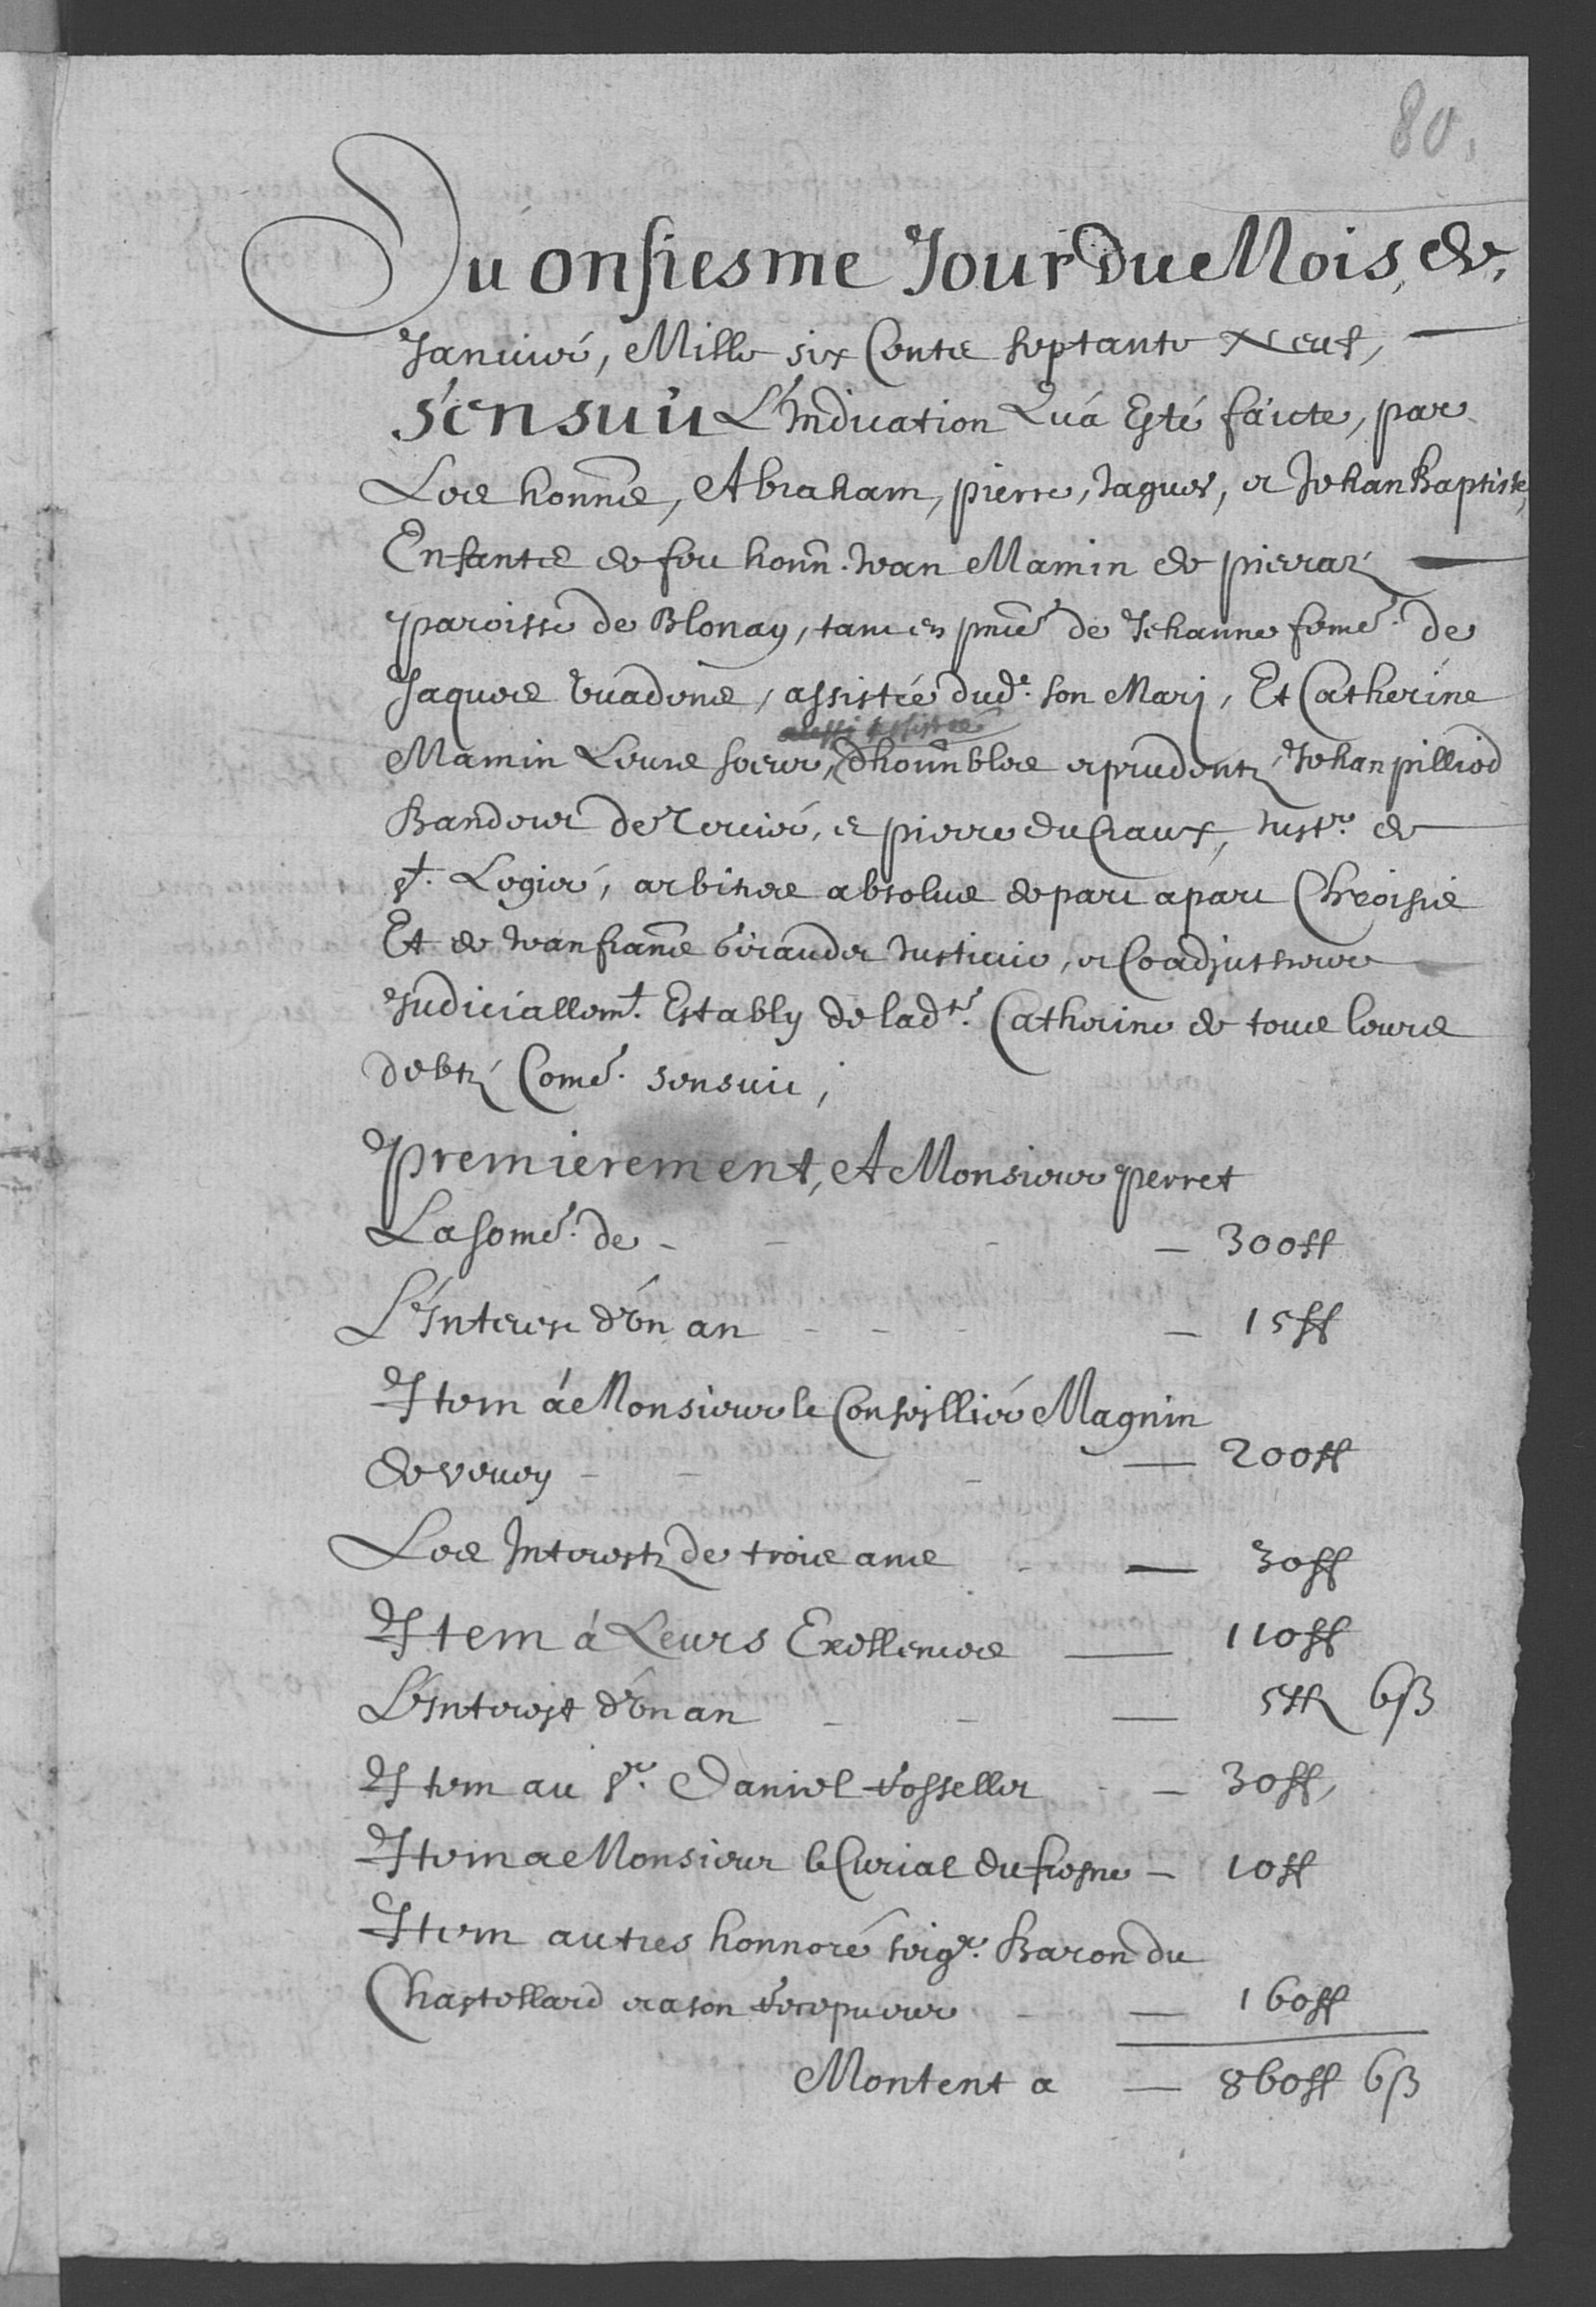 80.
Du onsiesme Jour Du Mois, de
Janvier, Mille six Cents septante Neuf,
S'en suit L'Indication Qu'a Esté faicte, par
Les honnes, Abraham, pierre, Jaques, et Jehan Baptiste,
Enfants de feu honn. Jean Mamin de pierraz
paroisse de Blonay, tant en de Jehanne feme. de
Jaques assistée dud. son Mary, Et Catherine
aussi assistée
Mamin Leurs soeurs, d'honnbles et prudentz Jehan pilliod
Banderet de et pierre du Craux, Just.r de
St. Legier, arbitres absolus de part a part Choisis
Et de Jean frans Girardet Justicier, et Coadjusteur
Judiciallemt. Estably de ladte. Catherine de tous leurs
debtz Come. sensuit,
Premierement, A Monsieur perret
La some. de - - - — 300 ff
L'Interest d'un an - - - — 15 ff
Item à Monsieur le Conseillier Magnin
de vevey - - - — 200 ff
Les Interestz de trois ans - — 30 ff
Item á Leurs Excellences — 110 ff
L'Interest d'un an - - — 5 ff 6 ß
Item au Sr. Daniel - — 30 ff,
Item a Monsieur le Curial dufresne — 10 ff
Item au tres honnoré seigr. Baron du
Chastellard et a son Recepveur - — 160 ff
Montent a — 860 ff 6 ß